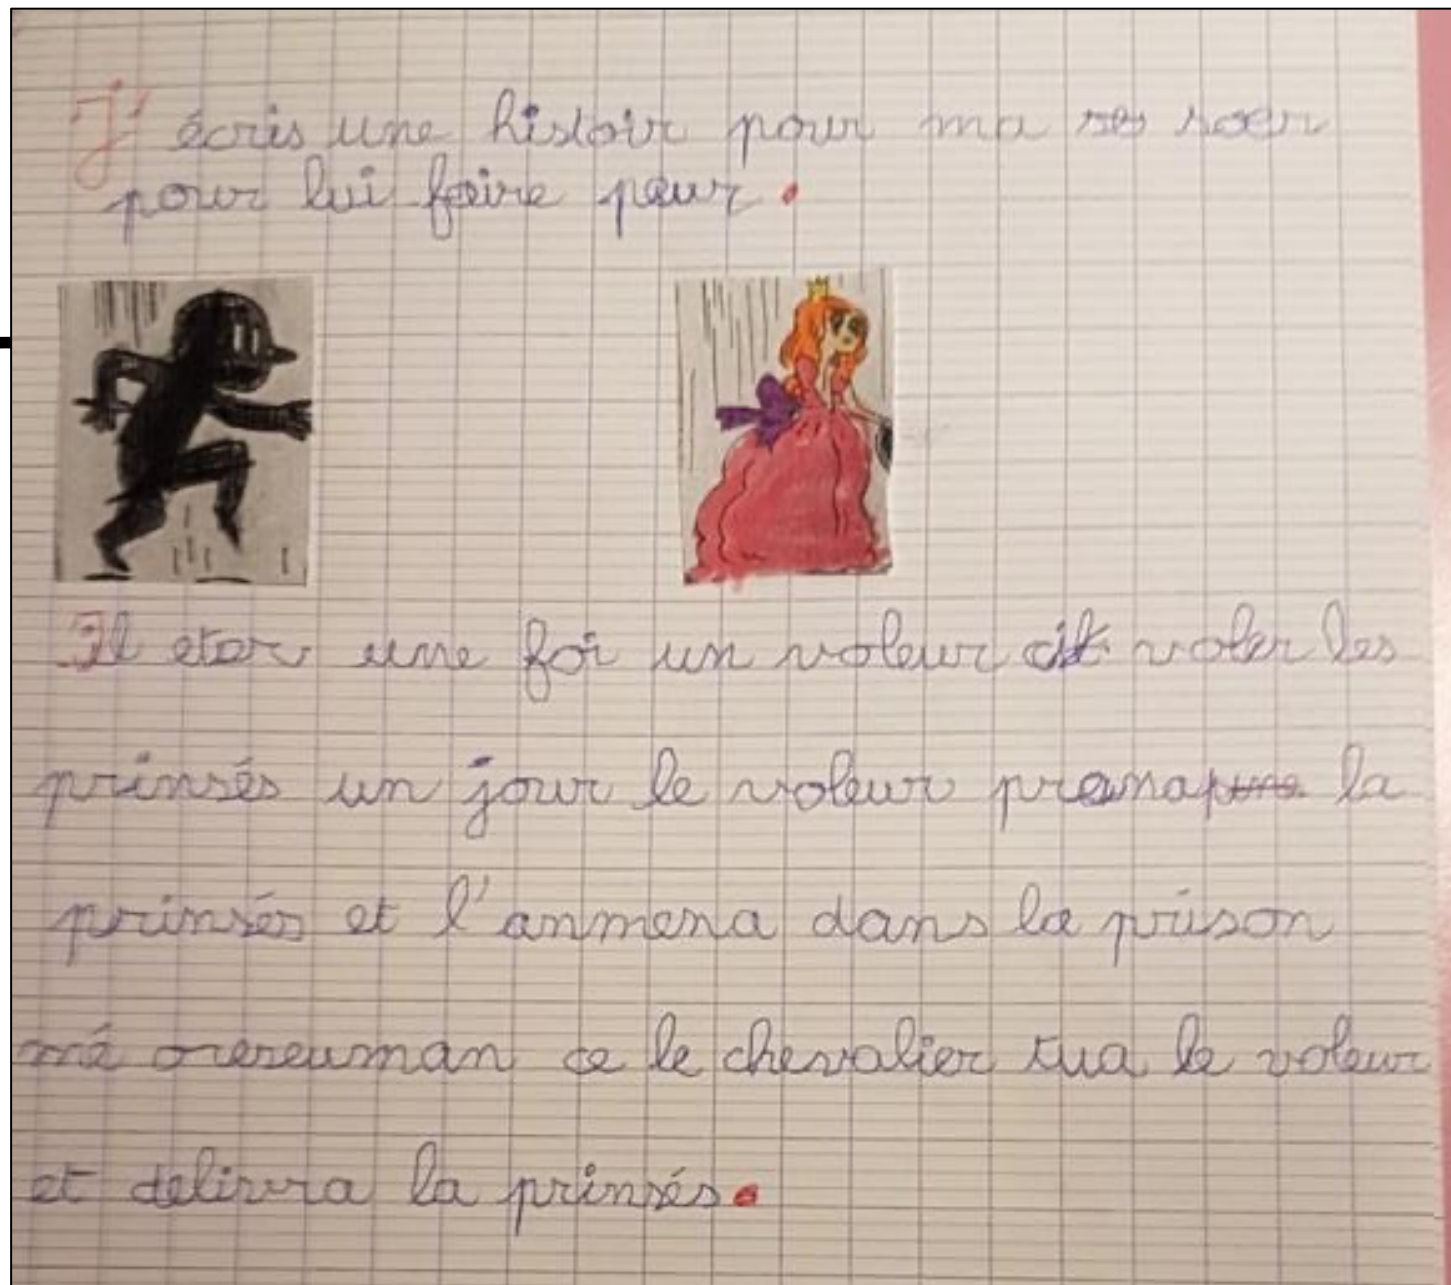 J'écris une histoir pour ma soeur
pour lui faire peur.
Il etai une foi un voleur voler les
prinsés un jour le voleur prena la
prinsés et l'anmena dans la prison
mé oreseuman ce le chevalier tua le voleur
et delivra la prinsés.